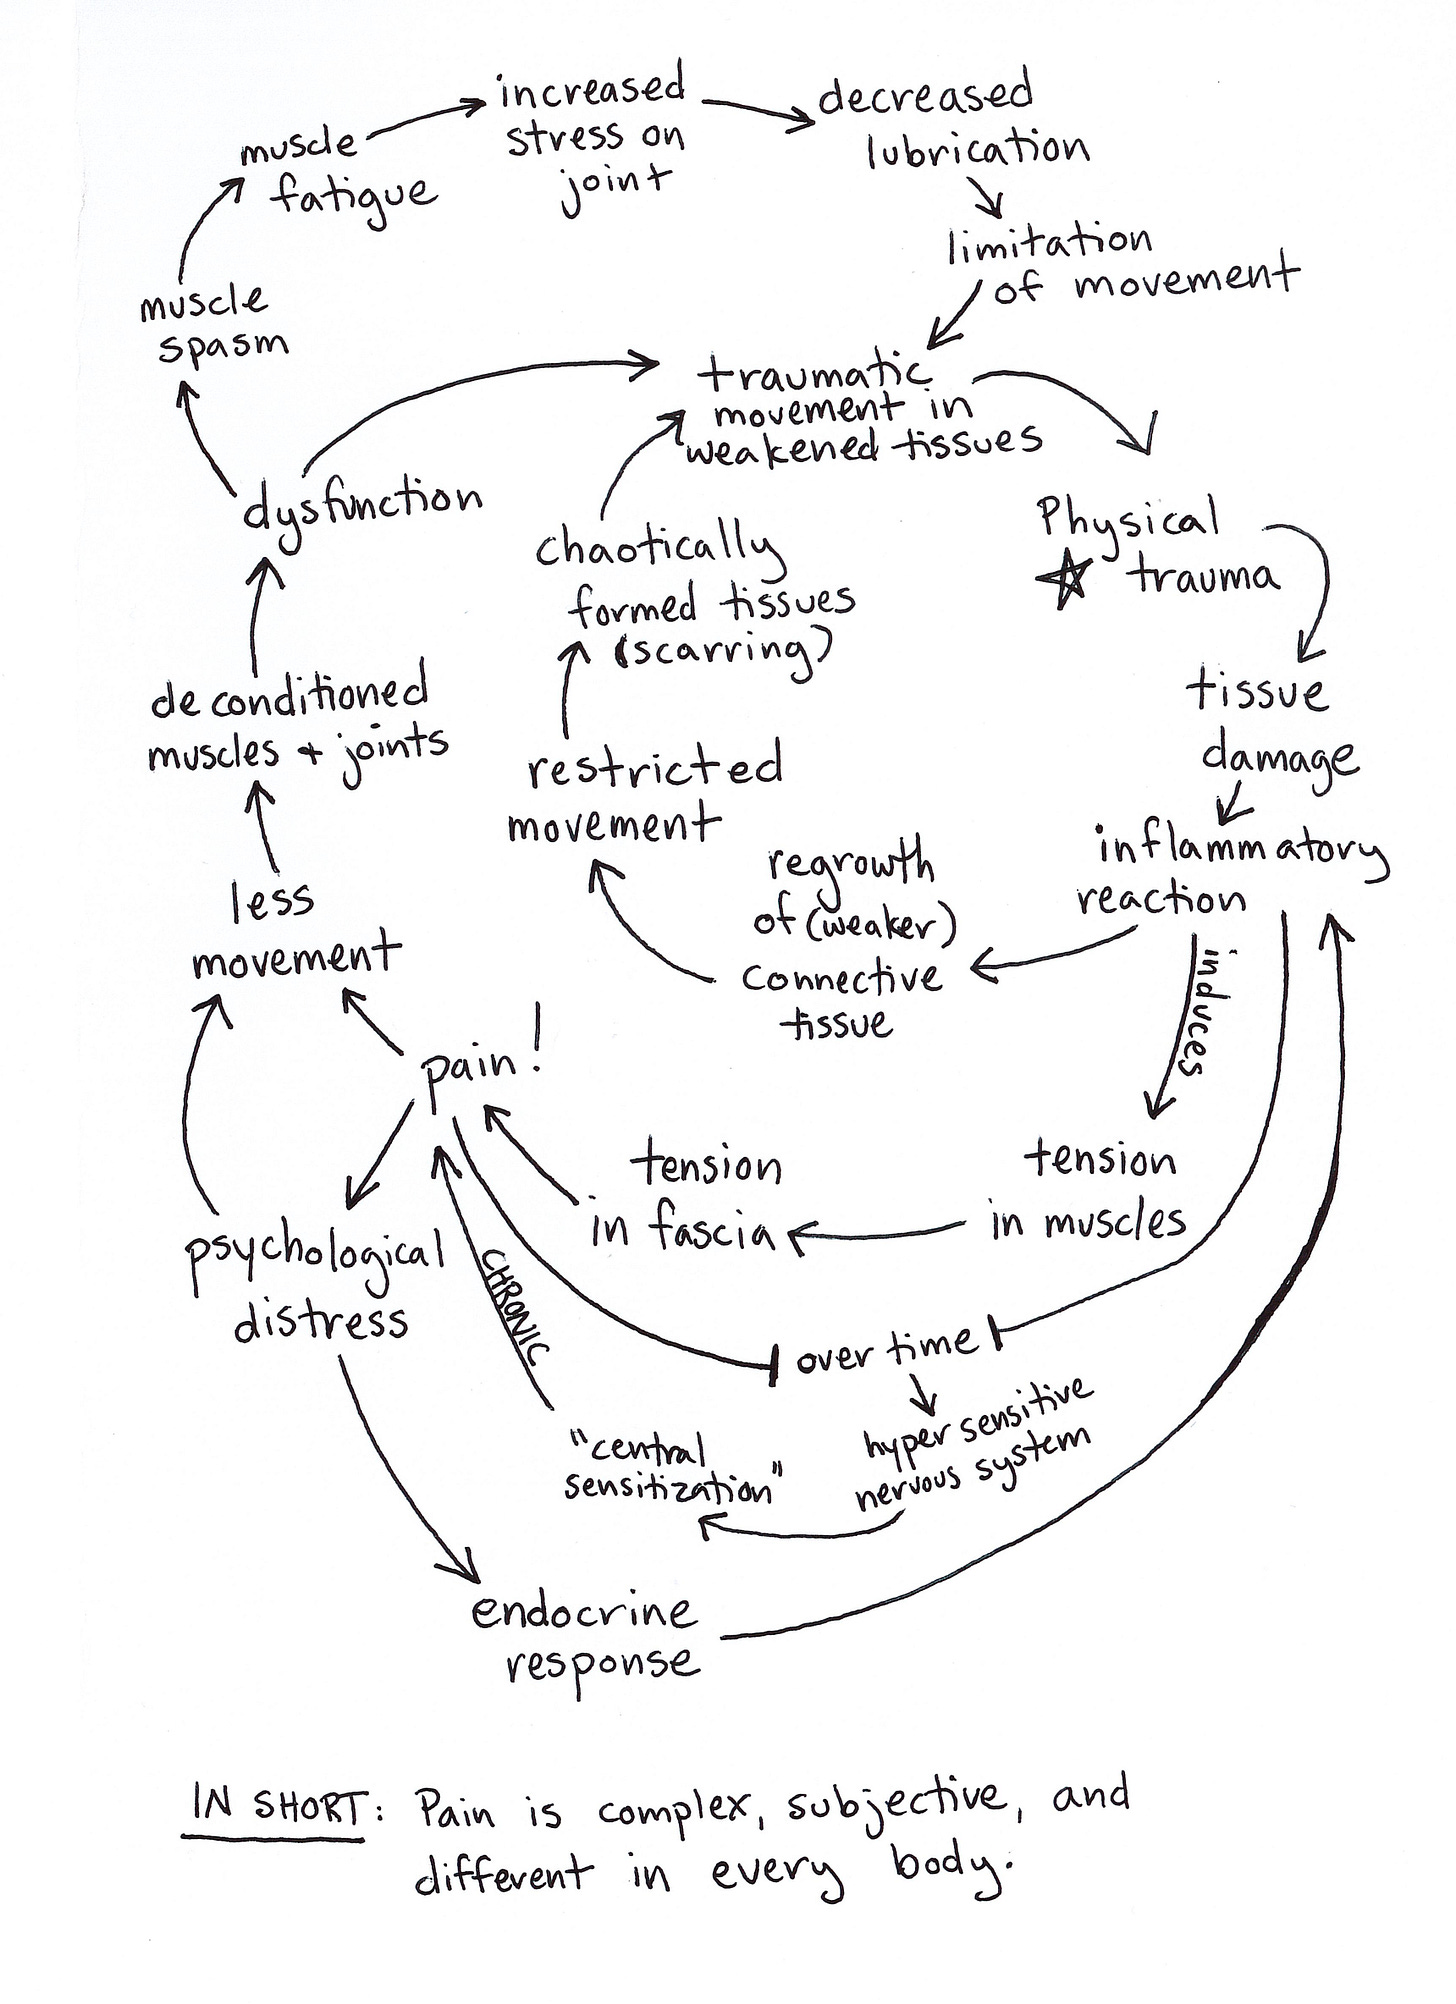 increased
stress on
joint
decreased
lubrication
muscle
fatigue
limitation
of movement
muscle
spasm
traumatic
movement in
weakened tissues
dysfunction
Physical
trauma
chaotically
formed tissues
(scarring)
tissue
damage
deconditioned
muscles + joints
restricted
movement
inflammatory
reaction
regrowth
of (weaker)
connective
tissue
less
movement
induces
pain!
tension
in fascia
tension
in muscles
psychological
distress
CHRONIC
over time
hyper sensitive
nervous system
"central
sensitization"
endocrine
response
IN SHORT: Pain is complex, subjective, and
different in every body.